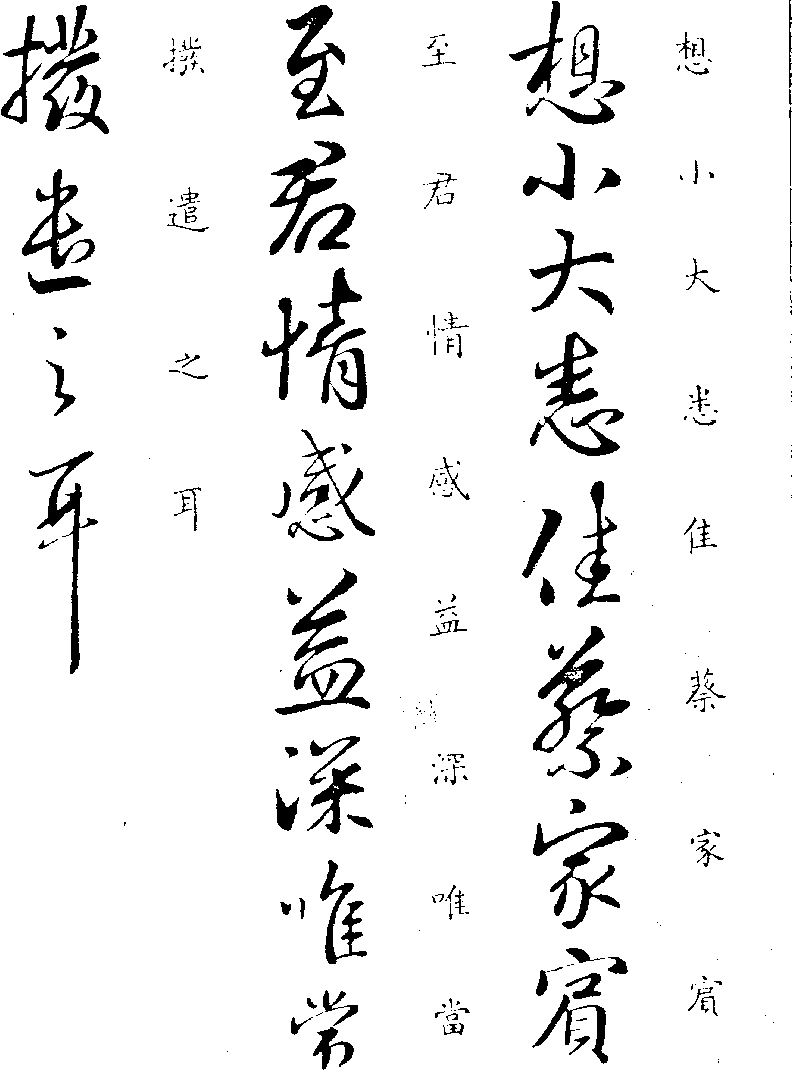 想小大悉佳蔡家賓
想小大悉佳蔡家賓
至君情感益深唯當
至君情感益深唯當
撥遣之耳
撥遣之耳